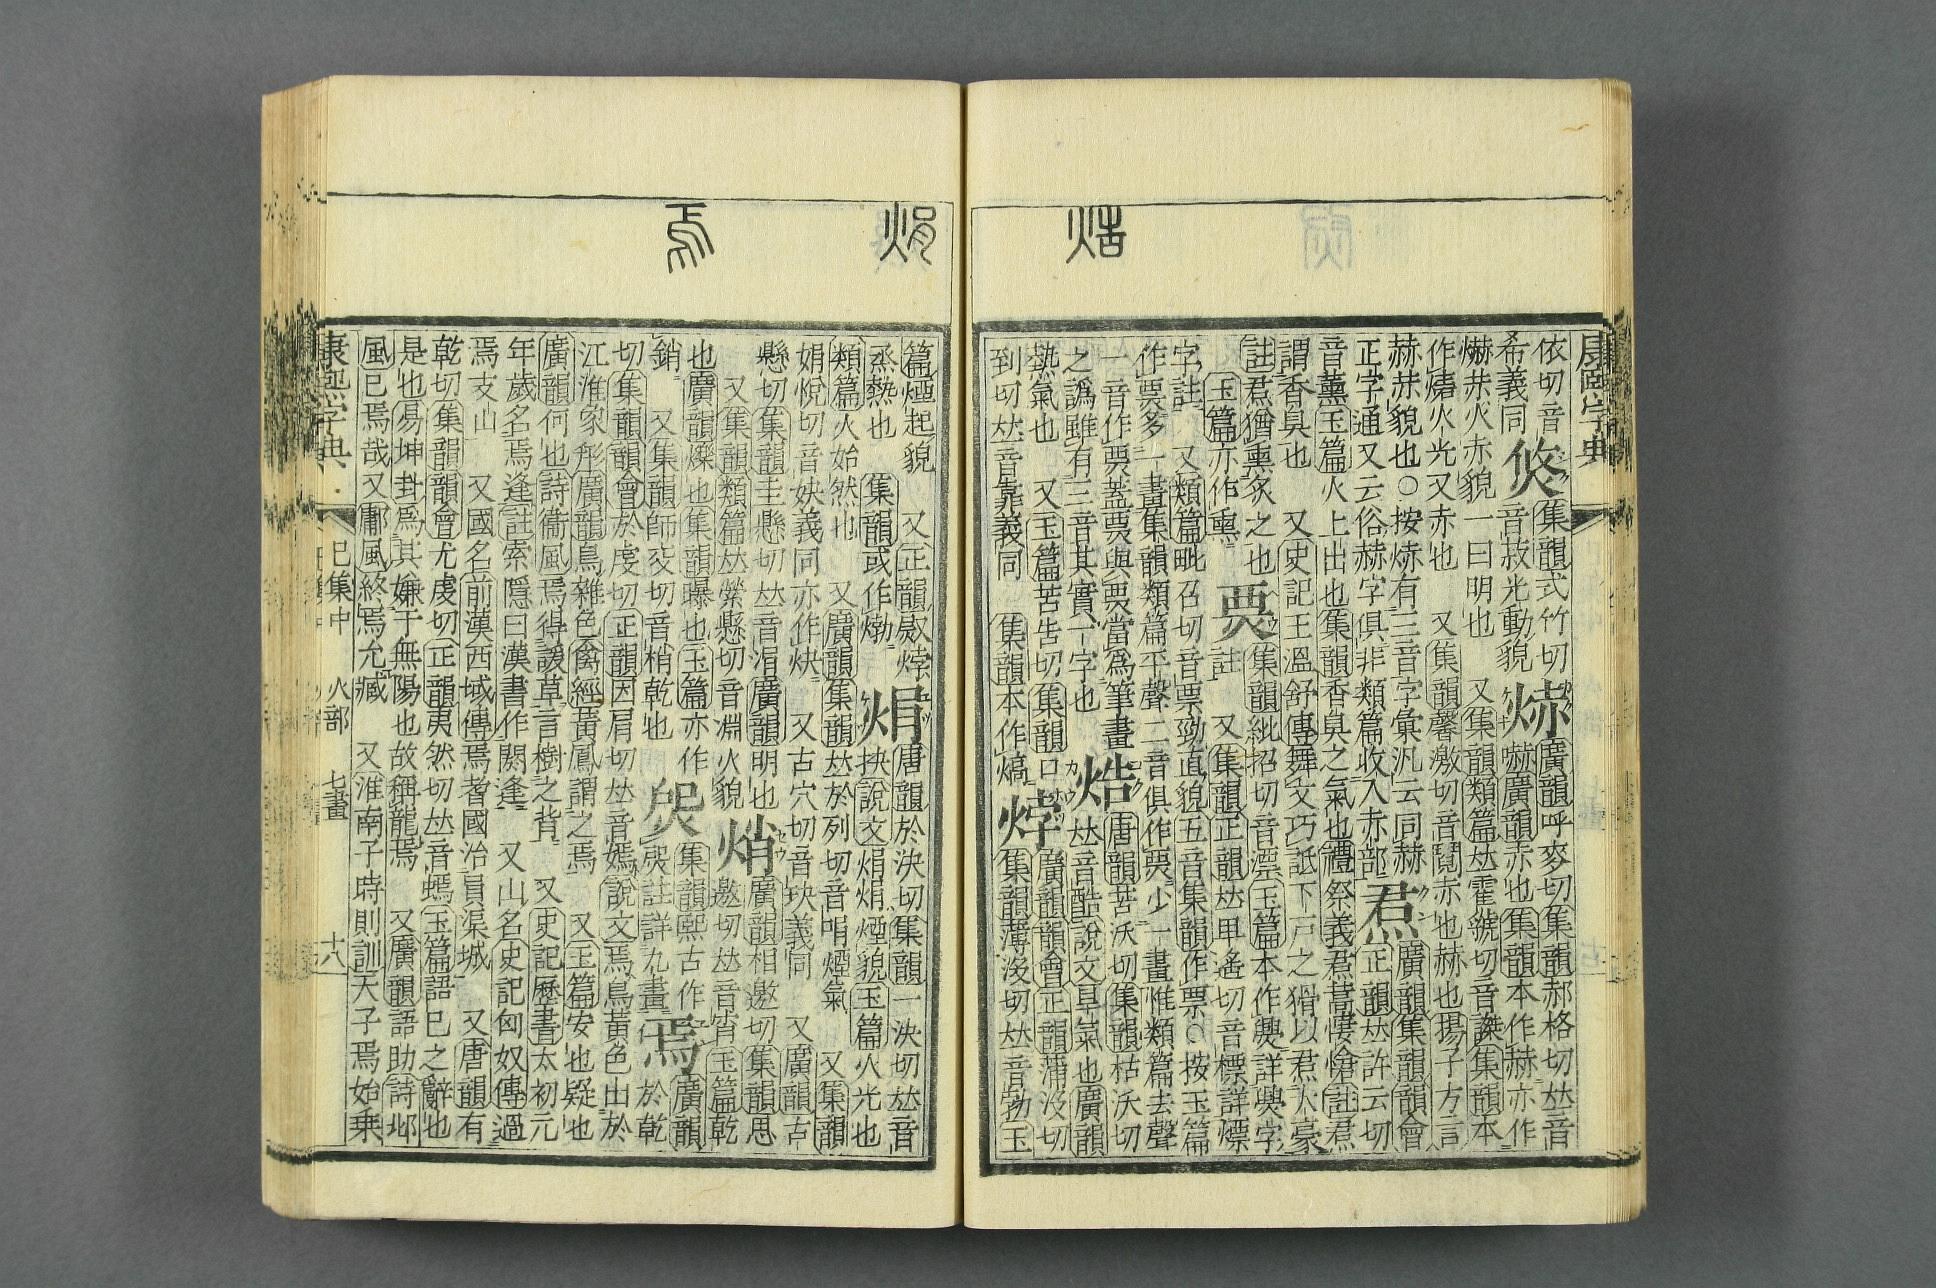 焅
康熙字典
依切音
希義同
焂
集韻式竹切
音菽光動貌
焃
廣韻呼麥切集韻郝格切𠀤音
嚇廣韻赤也集韻本作赫亦作
爀火赤貌一曰明也　又集韻類篇𠀤霍虢切音謋集韻本
作火光又赤也　又集韻馨激切音鬩赤也赫也揚子方言
赫焃貌也○按焃有三音字彙汎云同赫
正字通又云俗赫字俱非類篇收入赤部
焄
廣韻集韻韻會
正韻𠀤許云切
音薰玉篇火上出也集韻香臭之氣也禮祭義焄蒿悽愴註焄
謂香臭也　又史記王溫舒傳舞文巧詆下戸之猾以焄大豪
註焄猶熏炙之也
玉篇亦作
㷄
集韻紕招切音漂玉篇本作𤐫詳𤐫字
註　又集韻正韻𠀤甲遙切音標詳熛
字註　又類篇毗召切音票勁直貌五音集韻作票○按玉篇
作票多一畫集韻類篇平聲二音俱作㷄少一畫惟類篇去聲
一音作㷄蓋票與㷄當爲筆畫
之譌雖有三音其實一字也
焅
唐韻苦沃切集韻枯沃切
𠀤音酷說文旱氣也廣韻
熱氣也　又玉篇苦告切集韻口
到切𠀤音靠義同　集韻本作熇
㶿
廣韻韻會正韻蒲没切
集韻薄没切𠀤音勃玉
焆
焉
篇煙起貌　又正韻或作㶿
烝熱也　集韻或作
焆
唐韻於決切集韻一決切𠀤音
抉說文焆焆煙貌玉篇火光也
類篇火始然也　又廣韻集韻𠀤於列切音焆煙氣　又集韻
娟悅切音妜義同亦作炔　又古穴切音玦義同　又廣韻古
懸切集韻圭懸切𠀤音涓廣韻明也
又集韻類篇𠀤縈懸切音淵火貌
焇
廣韻相邀切集韻思
邀切𠀤音宵玉篇乾
也廣韻爍也集韻曝也玉篇亦作
銷　又集韻師交切音梢乾也
集韻熙古作
註詳九畫
焉
廣韻
於乾
切集韻韻會於虔切正韻因肩切𠀤音嫣說文焉鳥黃色出於
江淮家形廣韻鳥雜色禽經黃鳳謂之焉　又玉篇安也疑也
廣韻何也詩衞風焉得諼草言樹之背　又史記歷書太初元
年歲名焉逢註索隱曰漢書作閼逢　又山名史記匈奴傳過
焉支山　又國名前漢西域傳焉耆國治員渠城　又唐韻有
乾切集韻韻會尤虔切正韻夷然切𠀤音蔫玉篇語巳之辭也
是也易坤卦爲其嫌于無陽也故稱龍焉　又廣韻語助詩邶
風巳焉哉又鄘風終焉允臧　又淮南子時則訓天子焉始乘
康熙字典　巳集中　火部　七畫　十八